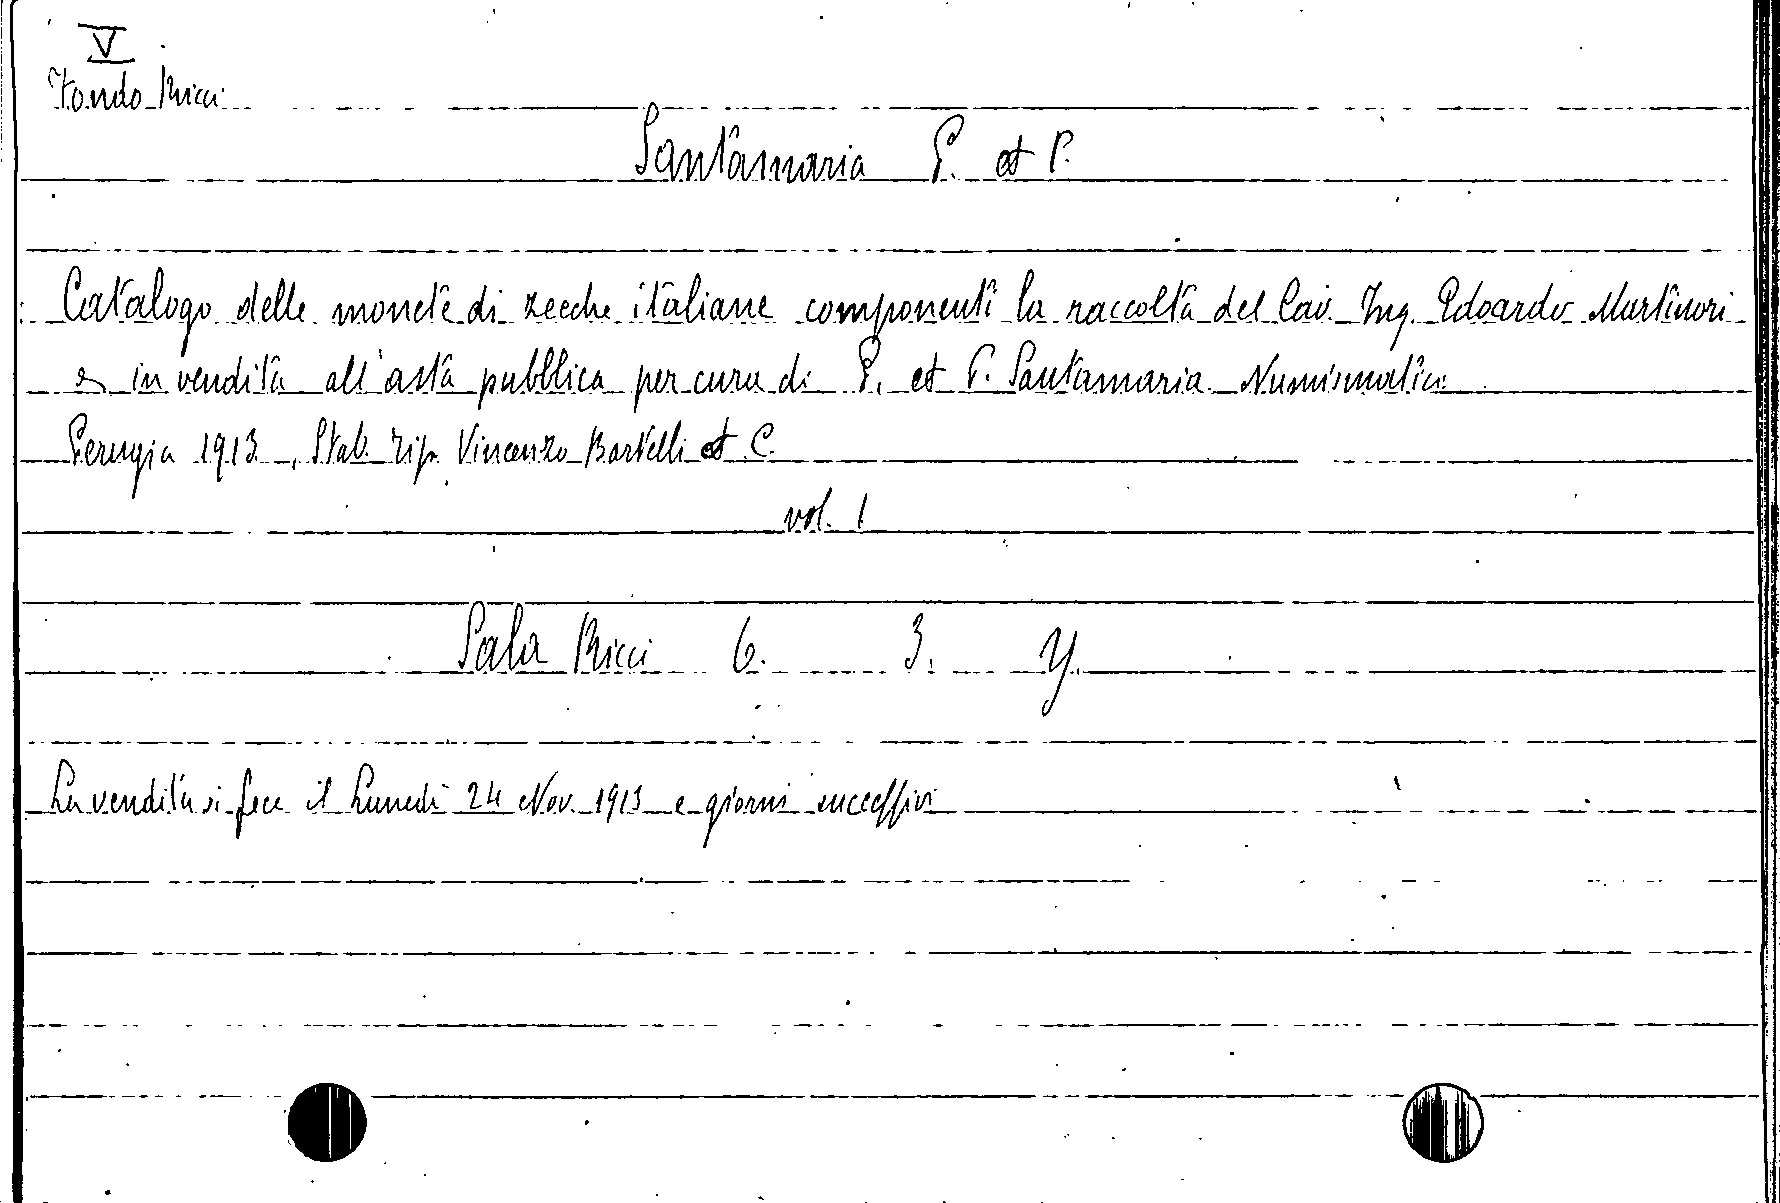 V
Fondo Ricci
Santamaria P. et P.
Catalogo delle monete di zecche italiane componenti la raccolta del Cav. Ing. Edoardo Martinori
e in vendita all'asta pubblica per cura di P. et P. Santamaria Numismatici
Perugia 1913, Stab. Tip. Vincenzo Bartelli et C.
vol. 1
Sala Ricci 6. 3. Y.
La vendita si fece il Lunedì 24 Nov. 1913 e giorni successivi